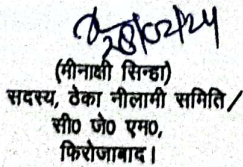 28/02/24
(मीनाक्षी सिन्हा)
सदस्य, ठेका नीलामी समिति/
सी० जे० एम०,
फिरोजाबाद।